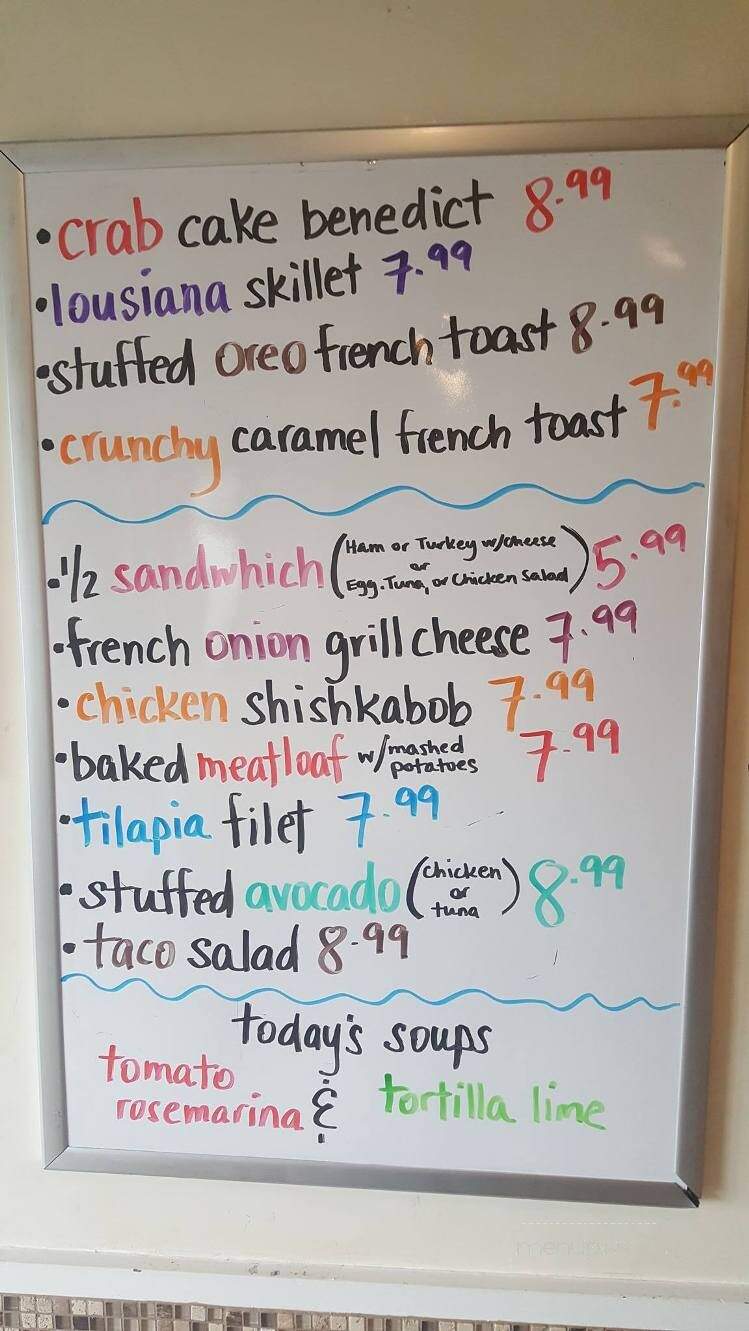 • crab cake benedict 8.99
• lousiana skillet 7.99
• stuffed oreo french toast 8.99
• crunchy caramel french toast 7.99
• 1/2 sandwhich (Ham or Turkey w/cheese or Egg, Tuna, or Chicken Salad) 5.99
• french onion grill cheese 7.99
• chicken shishkabob 7.99
• baked meatloaf w/mashed potatoes 7.99
• tilapia filet 7.99
• stuffed avocado (chicken or tuna) 8.99
• taco salad 8.99
today's soups
tomato rosemarina & tortilla lime